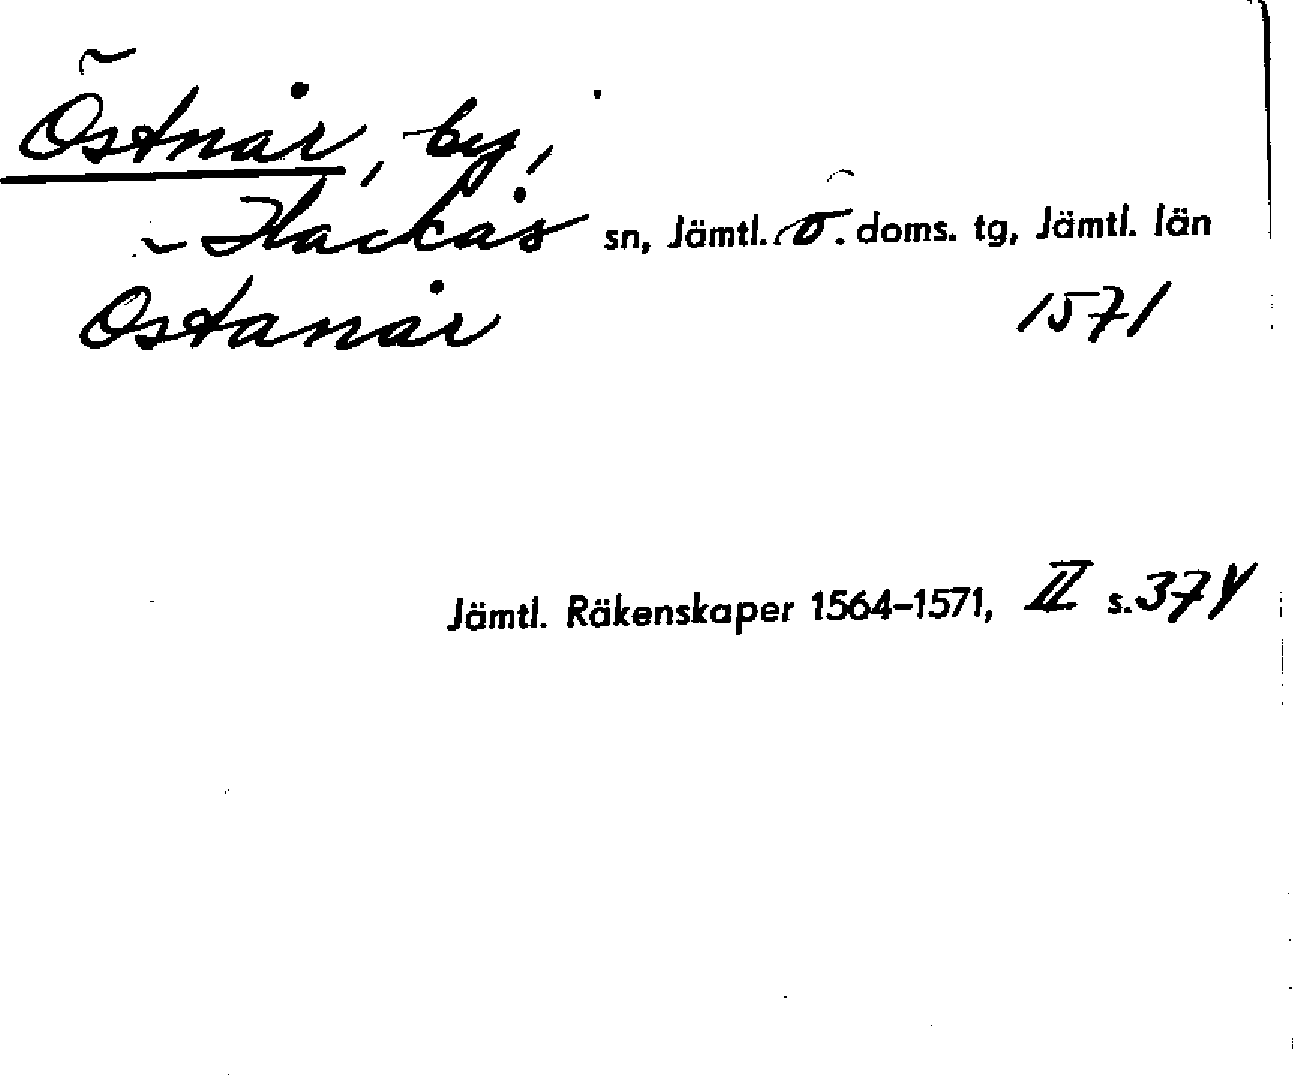 Östnår, by,
Hackås sn, Jämtl. ö. doms. tg, Jämtl. län
Östanår 1571
Jämtl. Räkenskaper 1564-1571, II s. 374